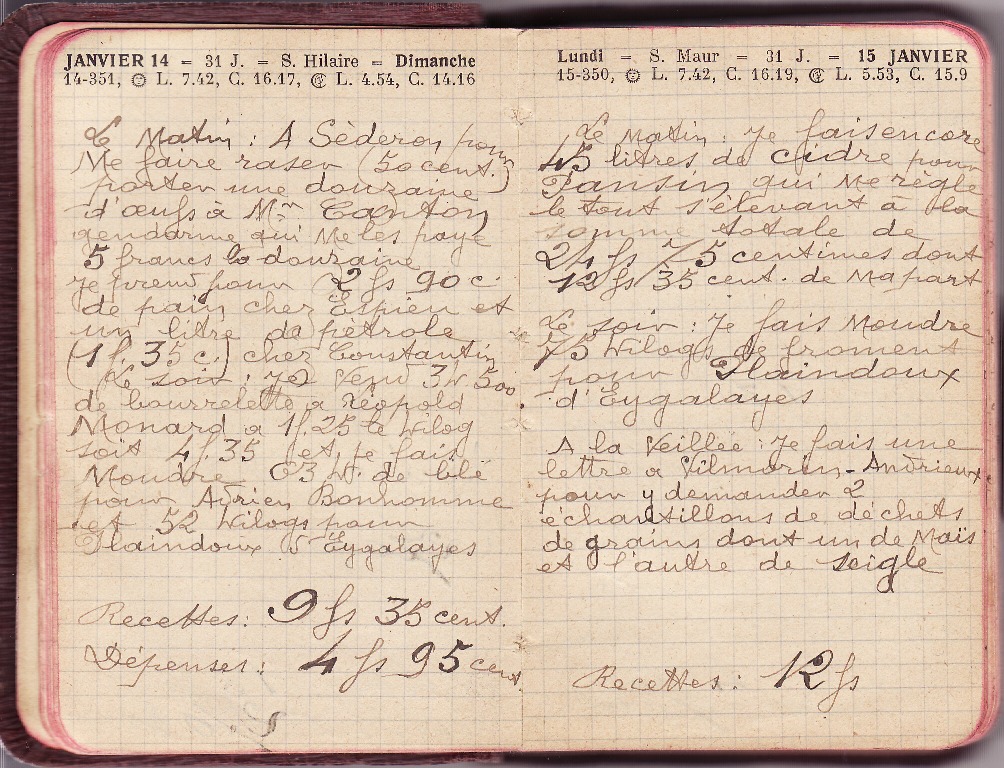 JANVIER 14 = 31 J. = S. Hilaire = Dimanche
14-351, L. 7.42, C. 16.17, L. 4.54, C. 14.16
Le Matin : A Séderon pour
Me faire raser (50 cent.)
porter une douzaine
d'œufs à Mr Canton
gendarme qui me les paye
5 francs la douzaine
je prend pour 2 fs 90 c.
de pain chez Espieu et
un litre de pétrole
(1 f. 35 c.) chez Constantin
Le soir : je vend 3 k 500
de bourrelette a Léopold
Monard a 1f 25 le kilog
soit 4 f 35 et je fais
Moudre 63 k. de blé
pour Adrien Bonhomme
et 52 kilogs pour
Plaindoux d'Eygalayes
Recettes : 9 fs 35 cent.
Dépenses : 4 fs 95 cent.
Lundi = S. Maur = 31 J. = 15 JANVIER
15-350, L. 7.42, C. 16.19, L. 5.53, C. 15.9
Le Matin : je fais encore
45 litres de cidre pour
Pansin qui me règle
le tout s'élevant à la
somme totale de
24 fs 75 centimes dont
12 fs 35 cent. de ma part
Le soir : je fais Moudre
75 kilogs de froment
pour Plaindoux
d'Eygalayes
A la Veillée : je fais une
lettre a Vilmorin-Andrieux
pour y demander 2
échantillons de déchets
de grains dont un de Maïs
et l'autre de seigle
Recettes : 12 fs